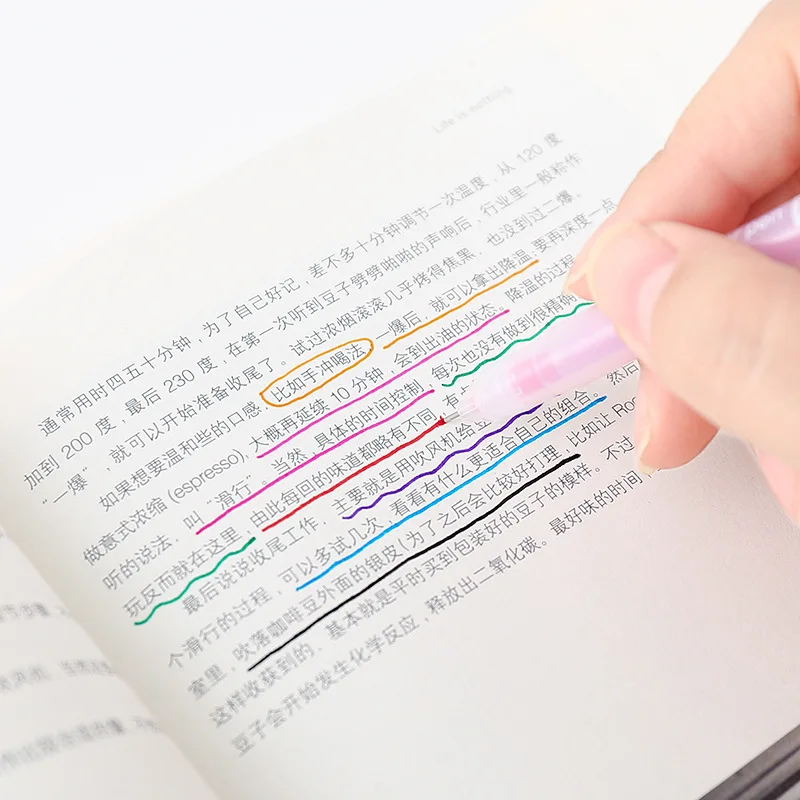 Life is nothing
通常用时四五十分钟，为了自己好记，差不多十分钟调节一次温度，从 120 度
加到 200 度，最后 230 度，在第一次听到豆子劈劈啪啪的声响后，行业里一般称作
“一爆”，就可以开始准备收尾了。试过浓烟滚滚几乎烤得焦黑，也没到过二爆。
如果想要温和些的口感，比如手冲喝法，一爆后，就可以拿出降温，要再深度一点
做意式浓缩 (espresso)，大概再延续 10 分钟，会到出油的状态。降温的过程
听的说法，叫“滑行”。当然，具体的时间控制，每次也没有做到很精确
玩反而就在这里，由此每回的味道都略有不同，有
最后说说收尾工作，主要就是用吹风机给豆
个滑行的过程，可以多试几次，看看有什么更适合自己的组合。然后
室里，吹落咖啡豆外面的银皮（为了之后会比较好打理，比如让 Ro
这样收获到的，基本就是平时买到包装好的豆子的模样。不过
豆子会开始发生化学反应，释放出二氧化碳。最好味的时间